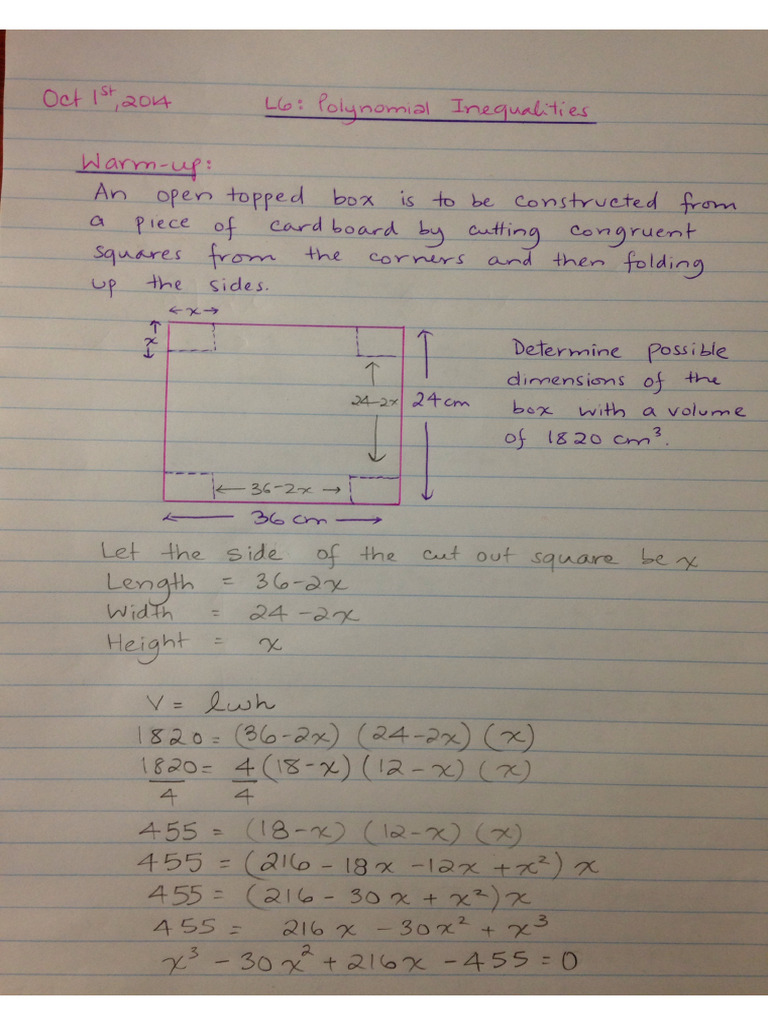 Oct 1st, 2014 L6: Polynomial Inequalities
Warm-up:
An open topped box is to be constructed from
a piece of cardboard by cutting congruent
squares from the corners and then folding
up the sides.
x
x
Determine possible
dimensions of the
24-2x 24 cm box with a volume
of 1820 cm³.
36-2x
36 cm
Let the side of the cut out square be x
Length = 36-2x
Width = 24-2x
Height = x
V = lwh
1820 = (36-2x) (24-2x) (x)
1820 = 4 (18-x) (12-x) (x)
4 4
455 = (18-x) (12-x) (x)
455 = (216 - 18x - 12x + x²) x
455 = (216 - 30x + x²) x
455 = 216x - 30x² + x³
x³ - 30x² + 216x - 455 = 0